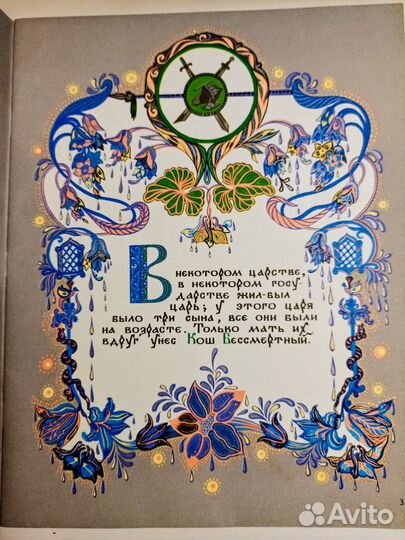 В некотором царстве,
в некотором госу
дарстве жил-был
царь; у этого царя
было три сына, все они были
на возрасте. Только мать их
вдруг унес Кош Бессмертный.
3
Avito